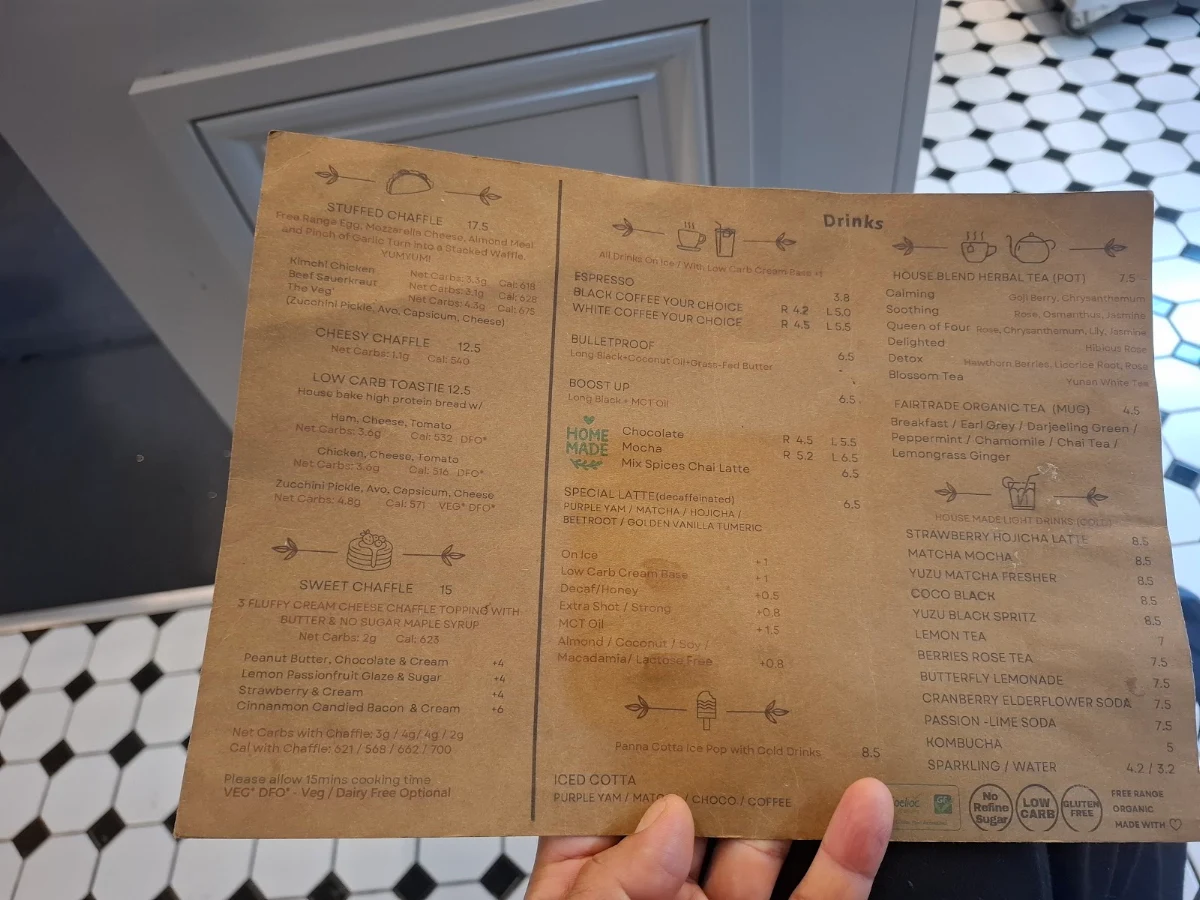 STUFFED CHAFFLE 17.5
Free Range Egg, Mozzarella Cheese, Almond Meal
and Pinch of Garlic Turn into a Stacked Waffle.
YUMYUM!
Kimchi Chicken Net Carbs: 3.3g Cal: 618
Beef Sauerkraut Net Carbs: 3.1g Cal: 628
The Veg' Net Carbs: 4.3g Cal: 675
(Zucchini Pickle, Avo, Capsicum, Cheese)
CHEESY CHAFFLE 12.5
Net Carbs: 1.1g Cal: 540
LOW CARB TOASTIE 12.5
House bake high protein bread w/
Ham, Cheese, Tomato
Net Carbs: 3.6g Cal: 532 DFO*
Chicken, Cheese, Tomato
Net Carbs: 3.6g Cal: 516 DFO*
Zucchini Pickle, Avo, Capsicum, Cheese
Net Carbs: 4.8g Cal: 571 VEG* DFO*
SWEET CHAFFLE 15
3 FLUFFY CREAM CHEESE CHAFFLE TOPPING WITH
BUTTER & NO SUGAR MAPLE SYRUP
Net Carbs: 2g Cal: 623
Peanut Butter, Chocolate & Cream +4
Lemon Passionfruit Glaze & Sugar +4
Strawberry & Cream +4
Cinnanmon Candied Bacon & Cream +6
Net Carbs with Chaffle: 3g / 4g/ 4g / 2g
Cal with Chaffle: 621 / 568 / 662 / 700
Please allow 15mins cooking time
VEG* DFO* - Veg / Dairy Free Optional
Drinks
All Drinks On Ice / With Low Carb Cream Base +1
ESPRESSO 3.8
BLACK COFFEE YOUR CHOICE R 4.2 L 5.0
WHITE COFFEE YOUR CHOICE R 4.5 L 5.5
BULLETPROOF 6.5
Long Black+Coconut Oil+Grass-Fed Butter
BOOST UP 6.5
Long Black + MCT Oil
HOME
MADE
Chocolate R 4.5 L 5.5
Mocha R 5.2 L 6.5
Mix Spices Chai Latte 6.5
SPECIAL LATTE(decaffeinated) 6.5
PURPLE YAM / MATCHA / HOJICHA /
BEETROOT / GOLDEN VANILLA TUMERIC
On Ice +1
Low Carb Cream Base +1
Decaf/Honey +0.5
Extra Shot / Strong +0.8
MCT Oil +1.5
Almond / Coconut / Soy /
Macadamia/ Lactose Free +0.8
Panna Cotta Ice Pop with Cold Drinks 8.5
ICED COTTA
PURPLE YAM / / CHOCO / COFFEE
HOUSE BLEND HERBAL TEA (POT) 7.5
Calming Goji Berry, Chrysanthemum
Soothing Rose, Osmanthus, Jasmine
Queen of Four Rose, Chrysanthemum, Lily, Jasmine
Delighted Hibicus Rose
Detox Hawthorn Berries, Licorice Root, Rose
Blossom Tea Yunan White Tea
FAIRTRADE ORGANIC TEA (MUG) 4.5
Breakfast / Earl Grey / Darjeeling Green /
Peppermint / Chamomile / Chai Tea /
Lemongrass Ginger
HOUSE MADE LIGHT DRINKS (COLD)
STRAWBERRY HOJICHA LATTE 8.5
MATCHA MOCHA 8.5
YUZU MATCHA FRESHER 8.5
COCO BLACK 8.5
YUZU BLACK SPRITZ 8.5
LEMON TEA 7
BERRIES ROSE TEA 7.5
BUTTERFLY LEMONADE 7.5
CRANBERRY ELDERFLOWER SODA 7.5
PASSION -LIME SODA 7.5
KOMBUCHA 5
SPARKLING / WATER 4.2 / 3.2
No
Refine
Sugar
LOW
CARB
GLUTEN
FREE
FREE RANGE
ORGANIC
MADE WITH